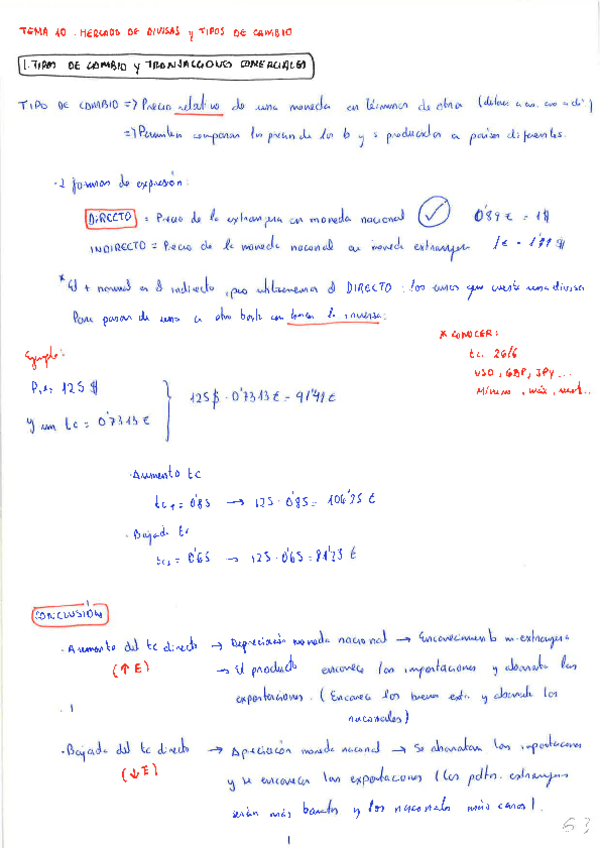 TEMA 10. MERCADO DE DIVISAS y TIPOS DE CAMBIO
1. TIPOS DE CAMBIO y TRANSACCIONES COMERCIALES
TIPO DE CAMBIO => Precio relativo de una moneda en términos de otra
=> Permiten comparar los precios de los b y s producidos a países diferentes.
· 2 formas de expresión:
DIRECTO = Precio de la extranjera en moneda nacional 0'89 € = 1$
INDIRECTO = Precio de la moneda nacional en moneda extranjera 1€ =
* El + normal es el indirecto, pero utilizaremos el DIRECTO: los euros que cuesta una divisa
Para pasar de uno a otro basta con hacer la inversa:
* CONOCER:
Ejemplo:
tc.
USD, GBP, JPY...
Mínimo, máx,
125 $
y un tc = 0'7313 €
125$ · 0'7313 € = 91'41 €
· Aumento tc
= 0'85 → 125 · 0'85 = 106'25 €
· Bajada tc
= 0'65 → 125 · 0'65 = 81'23 €
CONCLUSIÓN
· Aumento del tc directo → Depreciación moneda nacional → Encarecimiento m. extranjera
(↑ E) → El producto encarece las importaciones y abarata las
exportaciones. (Encarece los bienes ext. y abarata los
nacionales)
· 1
· Bajada del tc directo → Apreciación moneda nacional → Se abaratan las importaciones
(↓ E) y se encarecen las exportaciones (los pdtos. extranjeros
serán más baratos y los nacionales más caros).
1
63